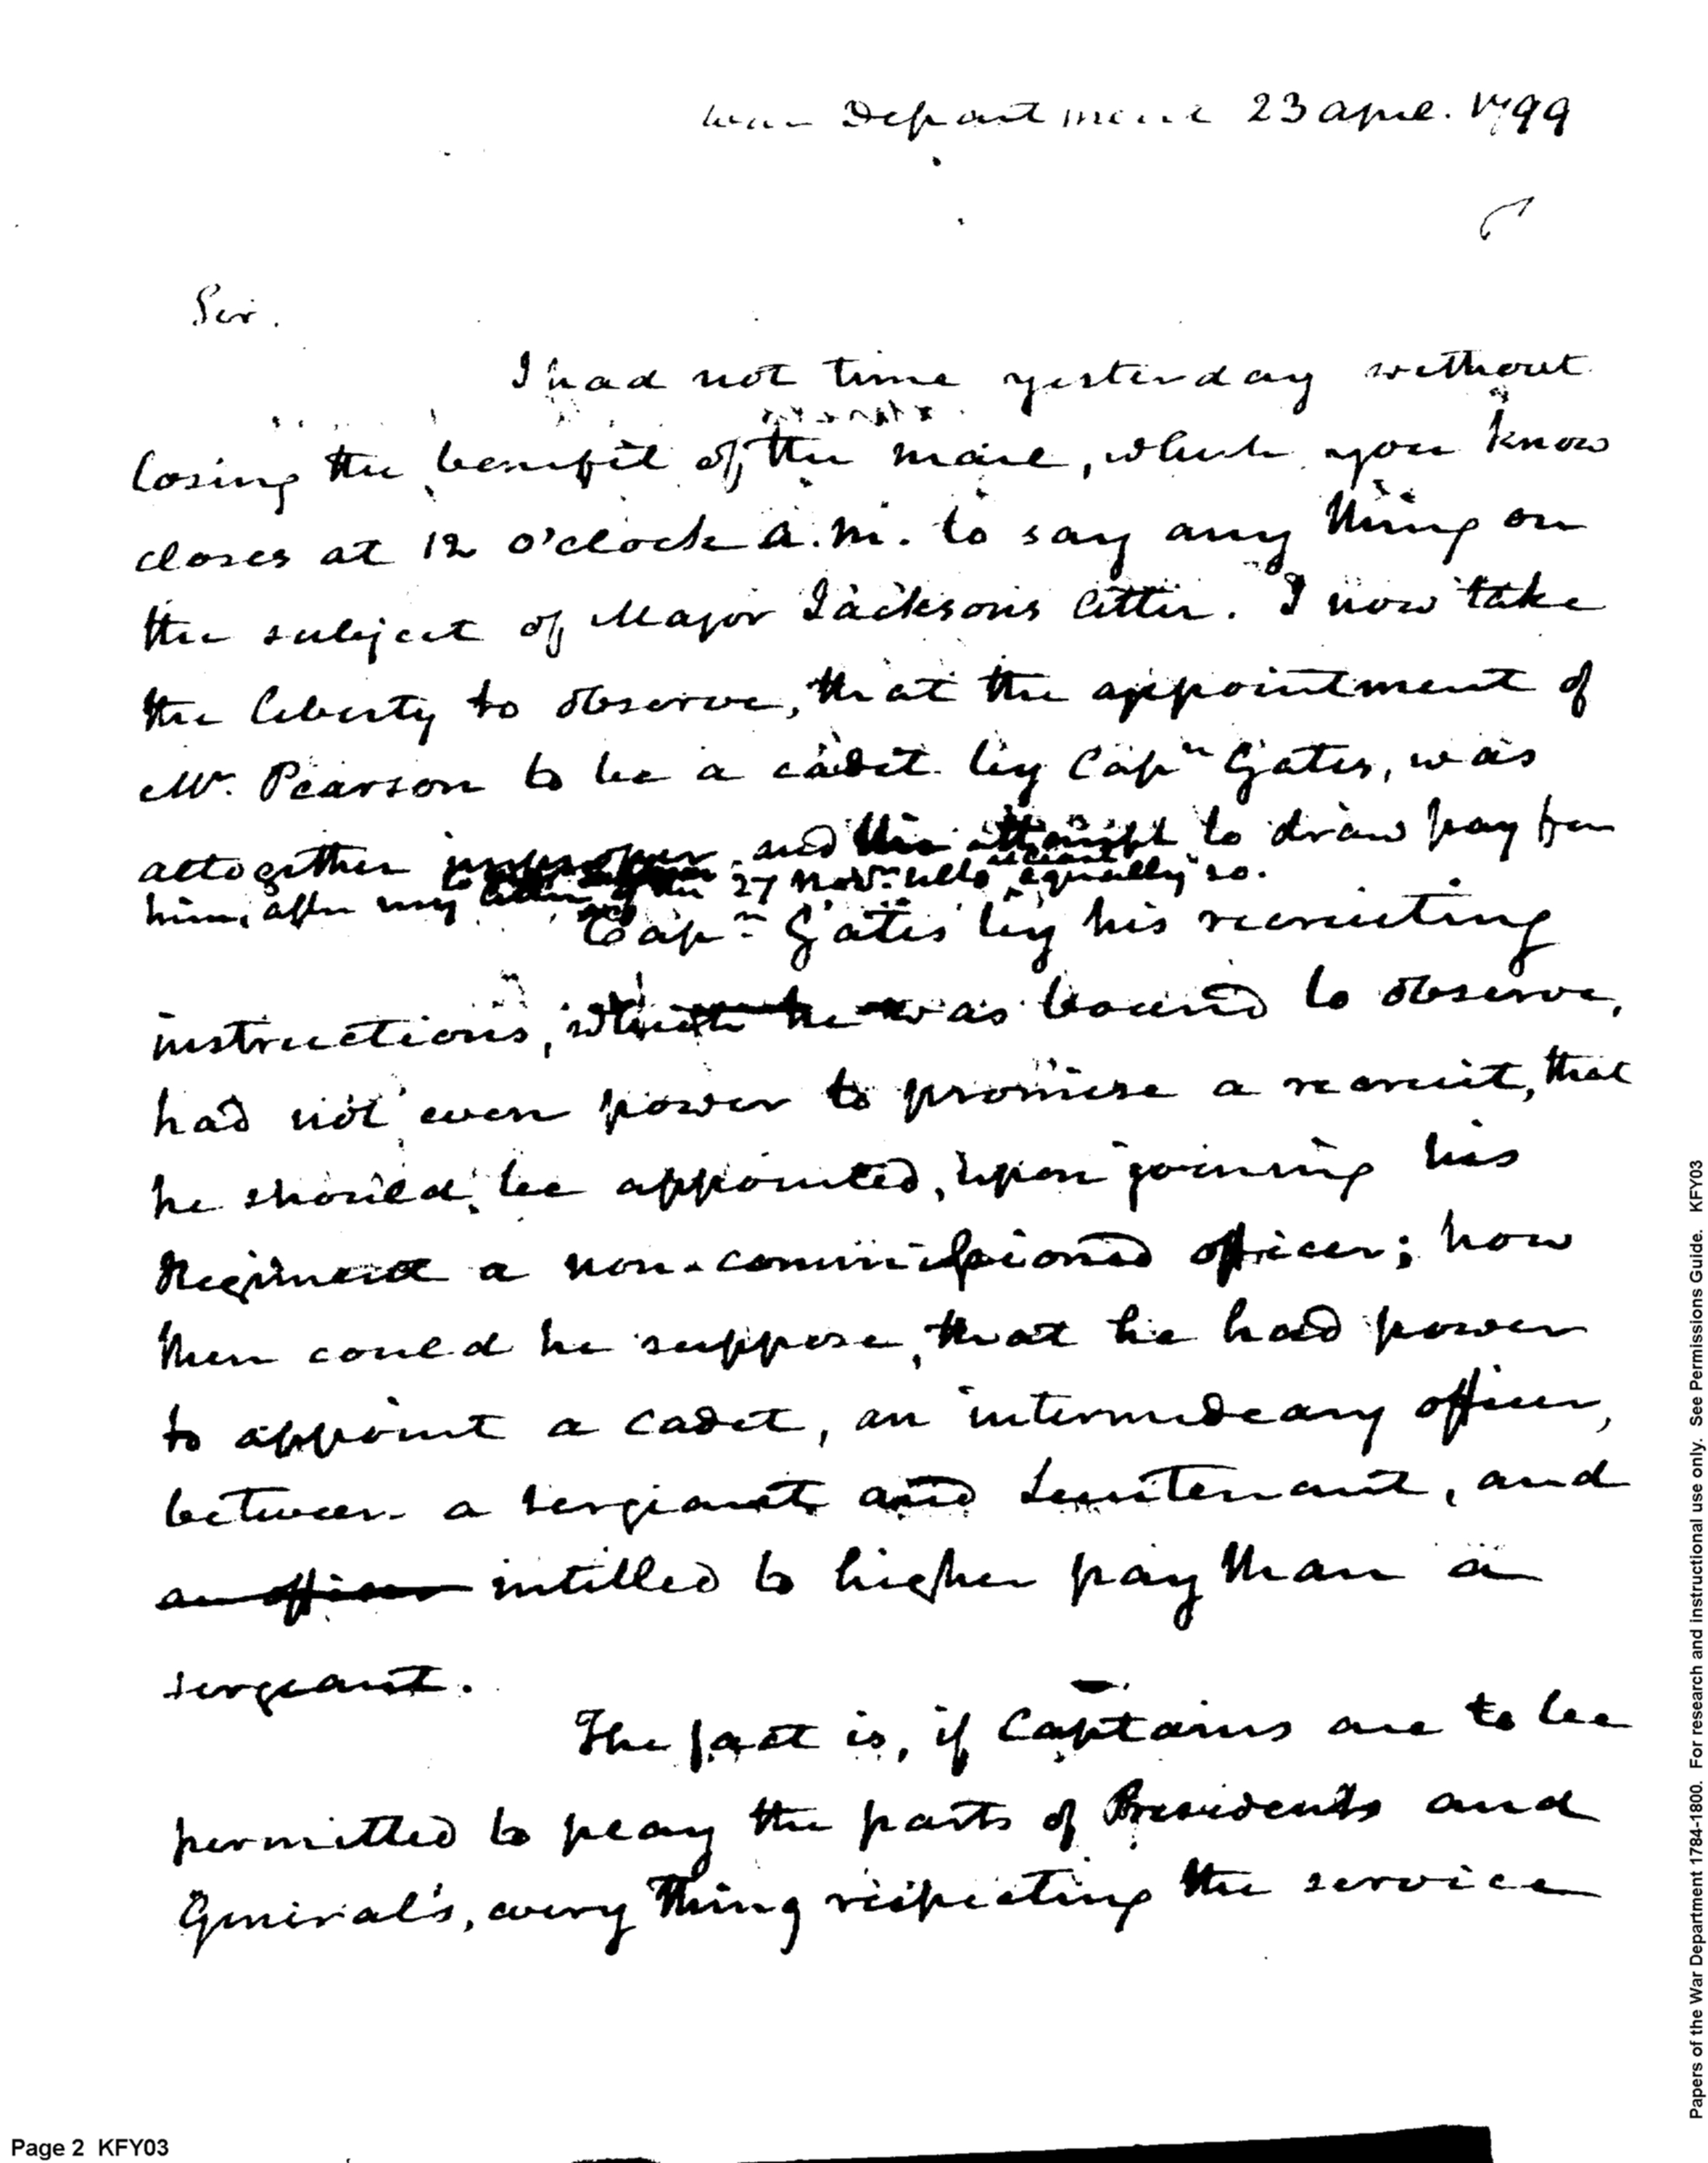 War Department 23 April. 1799
Sir.
I had not time yesterday without
losing the benefit of the mail, which you know
closes at 12 o'clock A.M. to say any thing on
the subject of Major Jacksons letter. I now take
the liberty to observe, that the appointment of
Mr. Pearson to be a cadet by Capn Gates, was
altogether improper and the attempt to draw pay for
him, after my letter of the 27 Novr. ulto equally so.
Capn Gates by his recruiting
instructions, which he was bound to observe,
had not even power to promise a recruit, that
he should be appointed, upon joining his
Regiment a non-commissioned officer; how
then could he suppose, that he had power
to appoint a cadet, an intermedeary officer,
between a sergeant and Leutenant, and
an officer intitled to higher pay than a
sergeant.
The fact is, if Captains are to be
permitted to play the parts of Presidents and
General's, every thing respecting the service
Page 2 KFY03
Papers of the War Department 1784-1800. For research and instructional use only. See Permissions Guide. KFY03